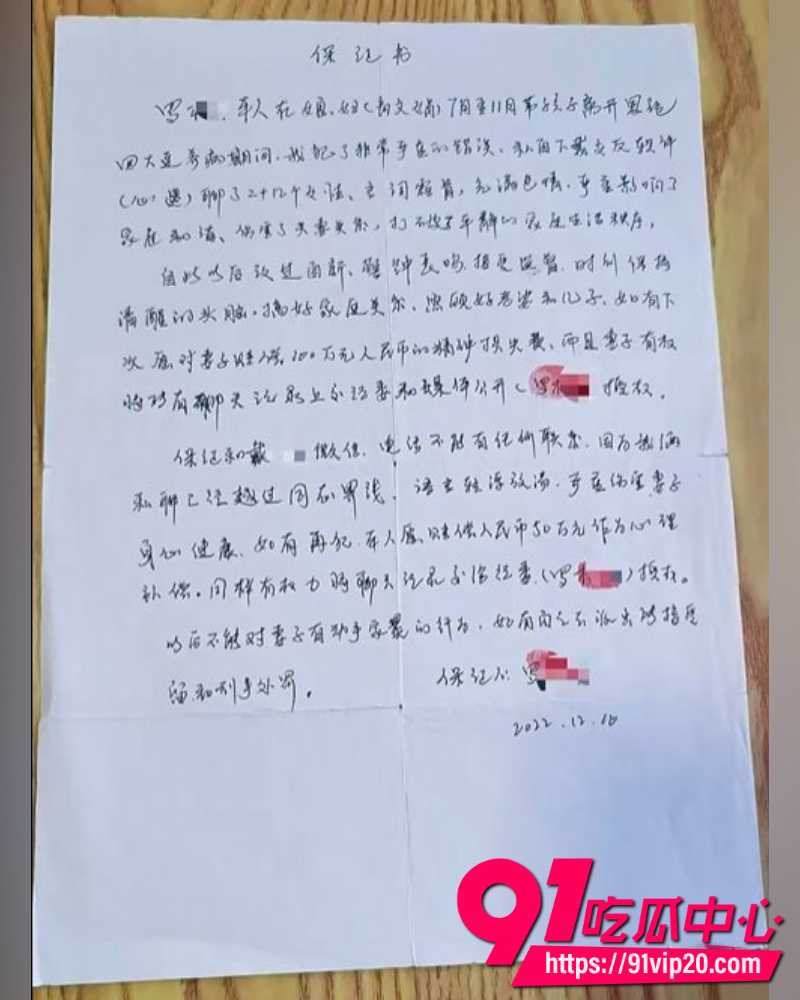 保证书
罗 本人在娘、妇 7月至11月带孩子离开恩施
回大连养病期间,我犯了非常严重的错误,私自下载交友软件
(心遇)聊了2+12个女性、言词 充满色情,严重影响了
家庭和谐、伤害了夫妻关系,打破了平静的家庭生活秩序。
自此以后改过自新、警钟长鸣 接受监督,时刻保持
清醒的头脑,搞好家庭关系、照顾好老婆和儿子、如有下
次 愿对妻子赔偿100万元人民币的精神损失费、而且妻子有权
将所有聊天记录上交纪委和媒体公开(罗 授权。
保证和戴 微信、电话不能有任何联系,因为 
私聊已经越过同志界线、语言轻浮放荡,严重伤害妻子
身心健康、如有再犯,本人愿赔偿人民币50万元作为心理
补偿。同样有权力将聊天记录交给纪委(罗 )授权。
以后不能对妻子有动手家暴的行为,如有 派出所接受
和刑事处罚。
保证人:罗
2022.12.
91吃瓜中心
https://91vip20.com